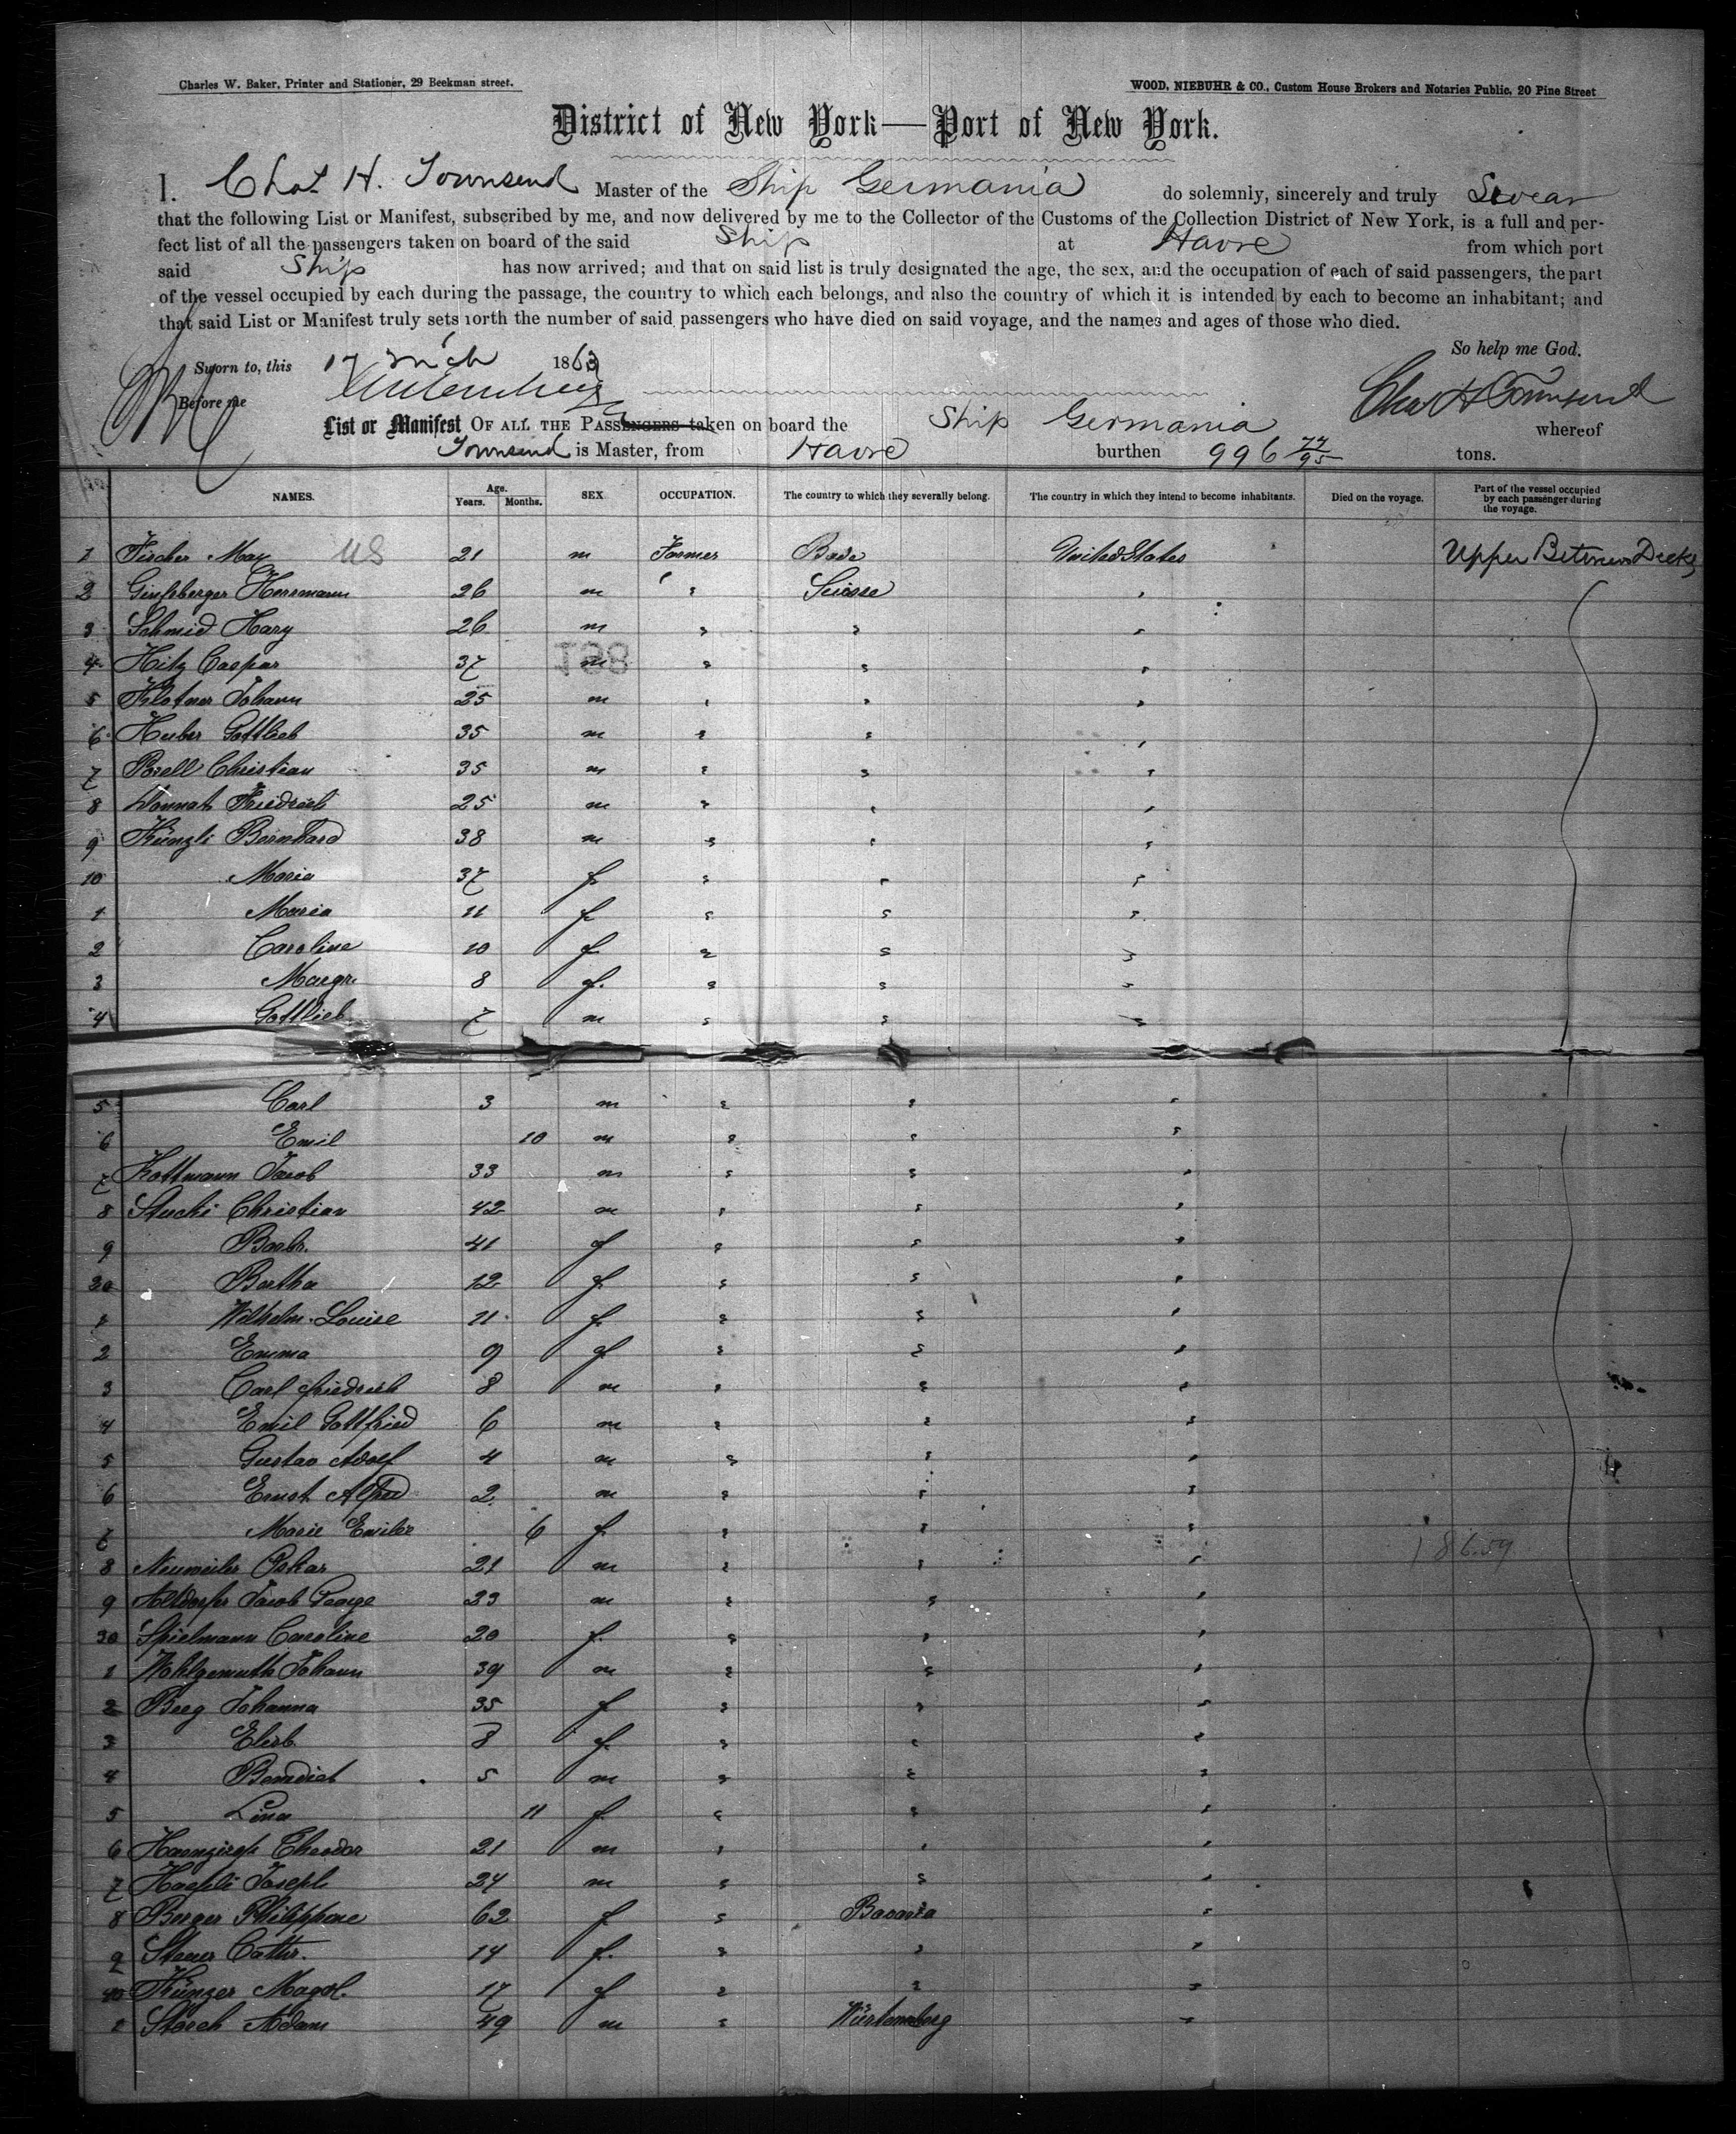 Charles W. Baker, Printer and Stationer, 29 Beekman street.
WOOD, NIEBUHR & CO., Custom House Brokers and Notaries Public, 20 Pine Street
District of New York—Port of New York.
I, Chas H. Townsend Master of the Ship Germania do solemnly, sincerely and truly Swear
that the following List or Manifest, subscribed by me, and now delivered by me to the Collector of the Customs of the Collection District of New York, is a full and per-
fect list of all the passengers taken on board of the said Ship at Havre from which port
said Ship has now arrived; and that on said list is truly designated the age, the sex, and the occupation of each of said passengers, the part
of the vessel occupied by each during the passage, the country to which each belongs, and also the country of which it is intended by each to become an inhabitant; and
that said List or Manifest truly sets forth the number of said passengers who have died on said voyage, and the names and ages of those who died.
So help me God.
Sworn to, this 17 Mch 1863
Before me
Chas H Townsend
List or Manifest OF ALL THE PASSENGERS taken on board the Ship Germania whereof
Townsend is Master, from Havre burthen 996 77/95 tons.
NAMES. Age. Years. Months. SEX. OCCUPATION. The country to which they severally belong. The country in which they intend to become inhabitants. Died on the voyage. Part of the vessel occupied by each passenger during the voyage.
1 Fischer Max US 21 m Farmer Bade United States Upper Between Decks
2 Herrmann 26 m " Suisse "
3 Schmid Hary 26 m " " "
198
4 Hitz Caspar 37 m " " "
5 Johann 25 m " " "
6 Huber Gottlieb 35 m " " "
7 Christian 35 m " " "
8 Friedrich 25 m " " "
9 Künzli Bernhard 38 m " " "
10 Maria 37 f " " "
1 Maria 11 f " " "
2 Caroline 10 f " " "
3 Margr. 8 f. " " "
4 Gottlieb 7 m " " "
5 Carl 3 m " " "
6 Emil 10 m " " "
7 Kottmann Jacob 33 m " " "
8 Stucki Christian 42 m " " "
9 Barb. 41 f " " "
20 Bertha 12 f " " "
1 Wilhelm. Louise 11 f " " "
2 Emma 9 f " " "
3 Carl Friedrich 8 m " " "
4 Emil Gottfried 6 m " " "
5 Gustav Adolf 4 m " " "
6 Ernst Alfred 2 m " " "
7 Marie 6 f " " "
8 Neuweiler Oskar 21 m " " "
9 Altdorfer Jacob George 23 m " " "
30 Spielmann Caroline 20 f. " " "
1 Wohlgemuth Johann 39 m " " "
2 Beeg Johanna 35 f " " "
3 Elisb. 8 f. " " "
4 Benedict 5 m " " "
5 Lina 11 f. " " "
6 Theodor 21 m " " "
7 Joseph 24 m " " "
8 Berger Philippine 62 f " Bavaria "
9 Cathr. 14 f. " " "
40 Künzer Magd. 17 f " " "
1 Storch Adam 49 m " Würtemberg "